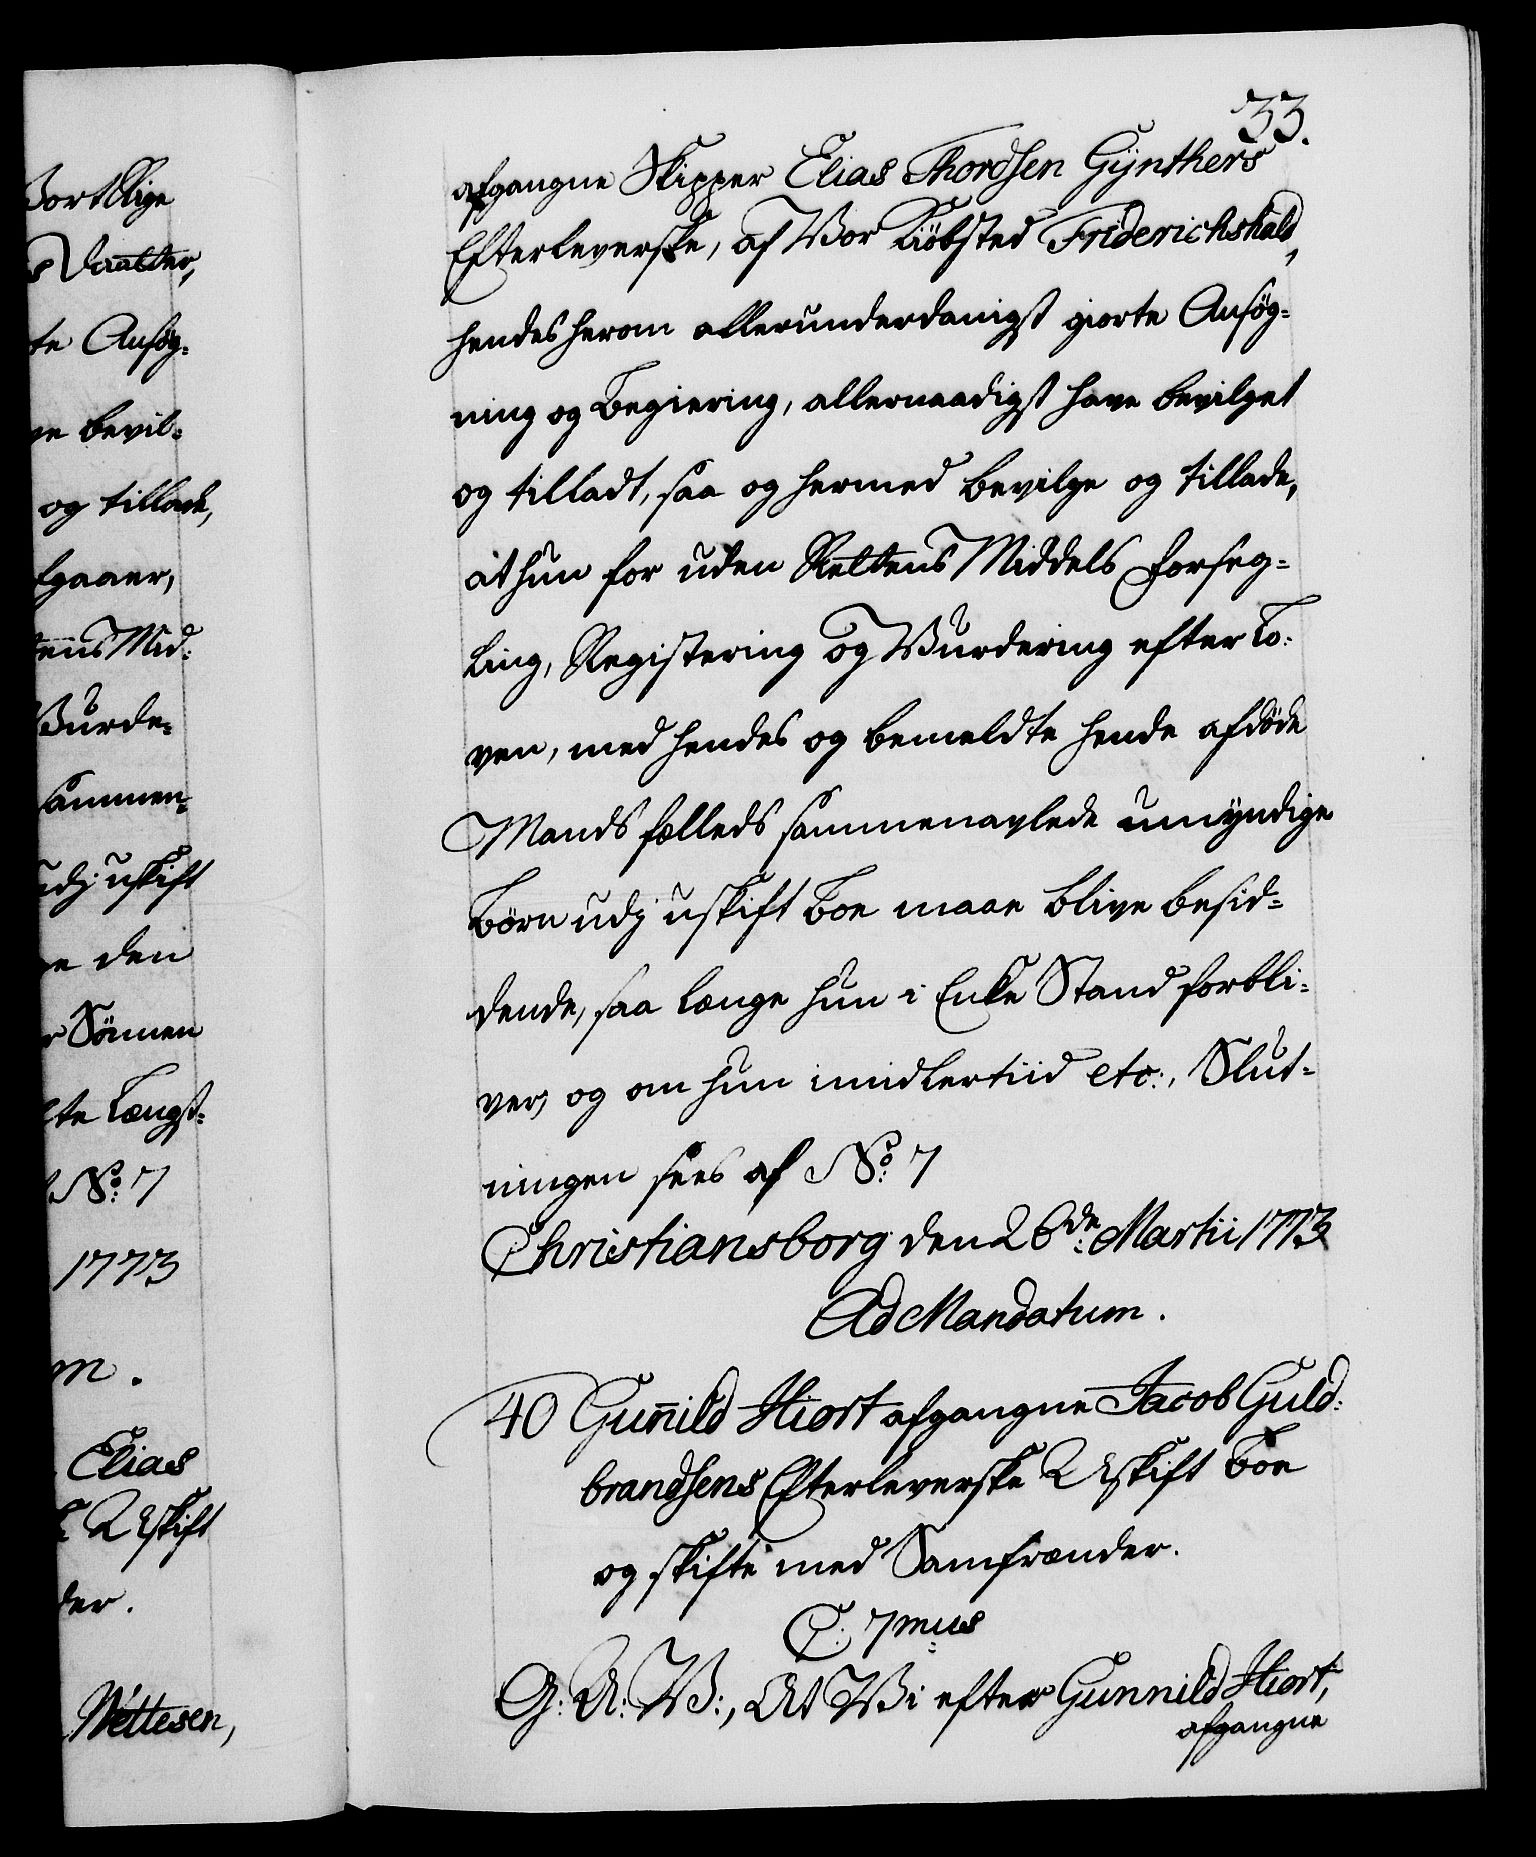 33.
afgangne Skipper Elias Thordsen Gÿnthers
Efterleverske, af Vor Kiöbsted Friderichshald,
hendes herom allerunderdanigst giorte Ansög-
ning og Begiering, allernaadigst have bevilget
og tilladt, saa og hermed bevilge og tillade,
at hun for uden Rettens Middels Forseg-
ling, Registering og Vurdering efter Lo-
ven, med hendes og bemeldte hende afdöde
Mands fælleds sammenavlede umÿndige
Börn udj uskift Boe maae blive besid-
dende, saa længe hun i Enke Stand forbli-
ver, og om hun imidlertiid etc:, Slut-
ningen sees af No: 7
Christiansborg den 26de: Martii 1773
Ad Mandatum.
40 Gunnild Hiort afgangne Jacob Guld-
brandsens Efterleverske Uskift Boe
og skifte med Samfrænder.
C: 7mus
G: A: V:, At Vi efter Gunnild Hiort,
afgangne
Vaatter,
te Ansög-
ve bevil-
og tillade,
fgaaer,
tens Mid-
Vurde-
sammen-
udj uskift
ge den
r Sönnen
te Længst-
No: 7
1773
m.
Elias
Uskift
der.
Wettesen,